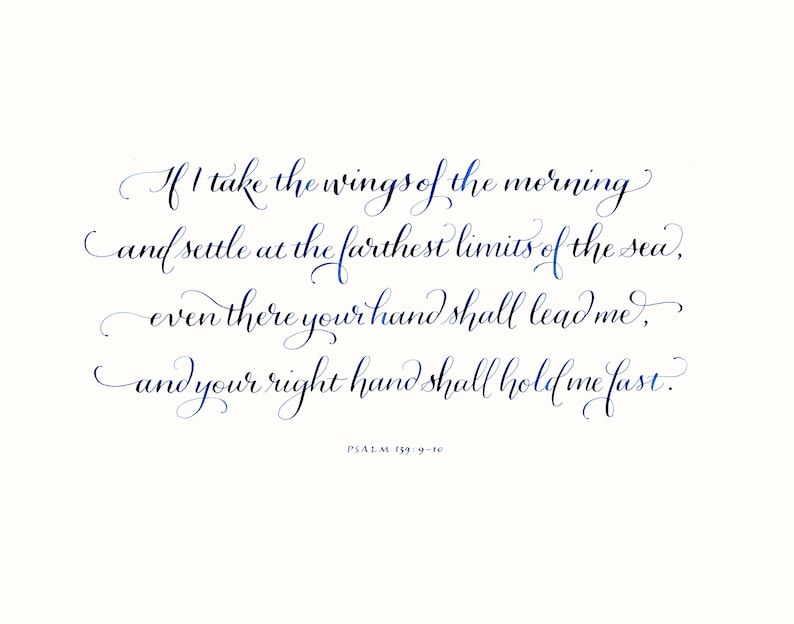 If I take the wings of the morning
and settle at the farthest limits of the sea,
even there your hand shall lead me,
and your right hand shall hold me fast.
PSALM 139:9-10